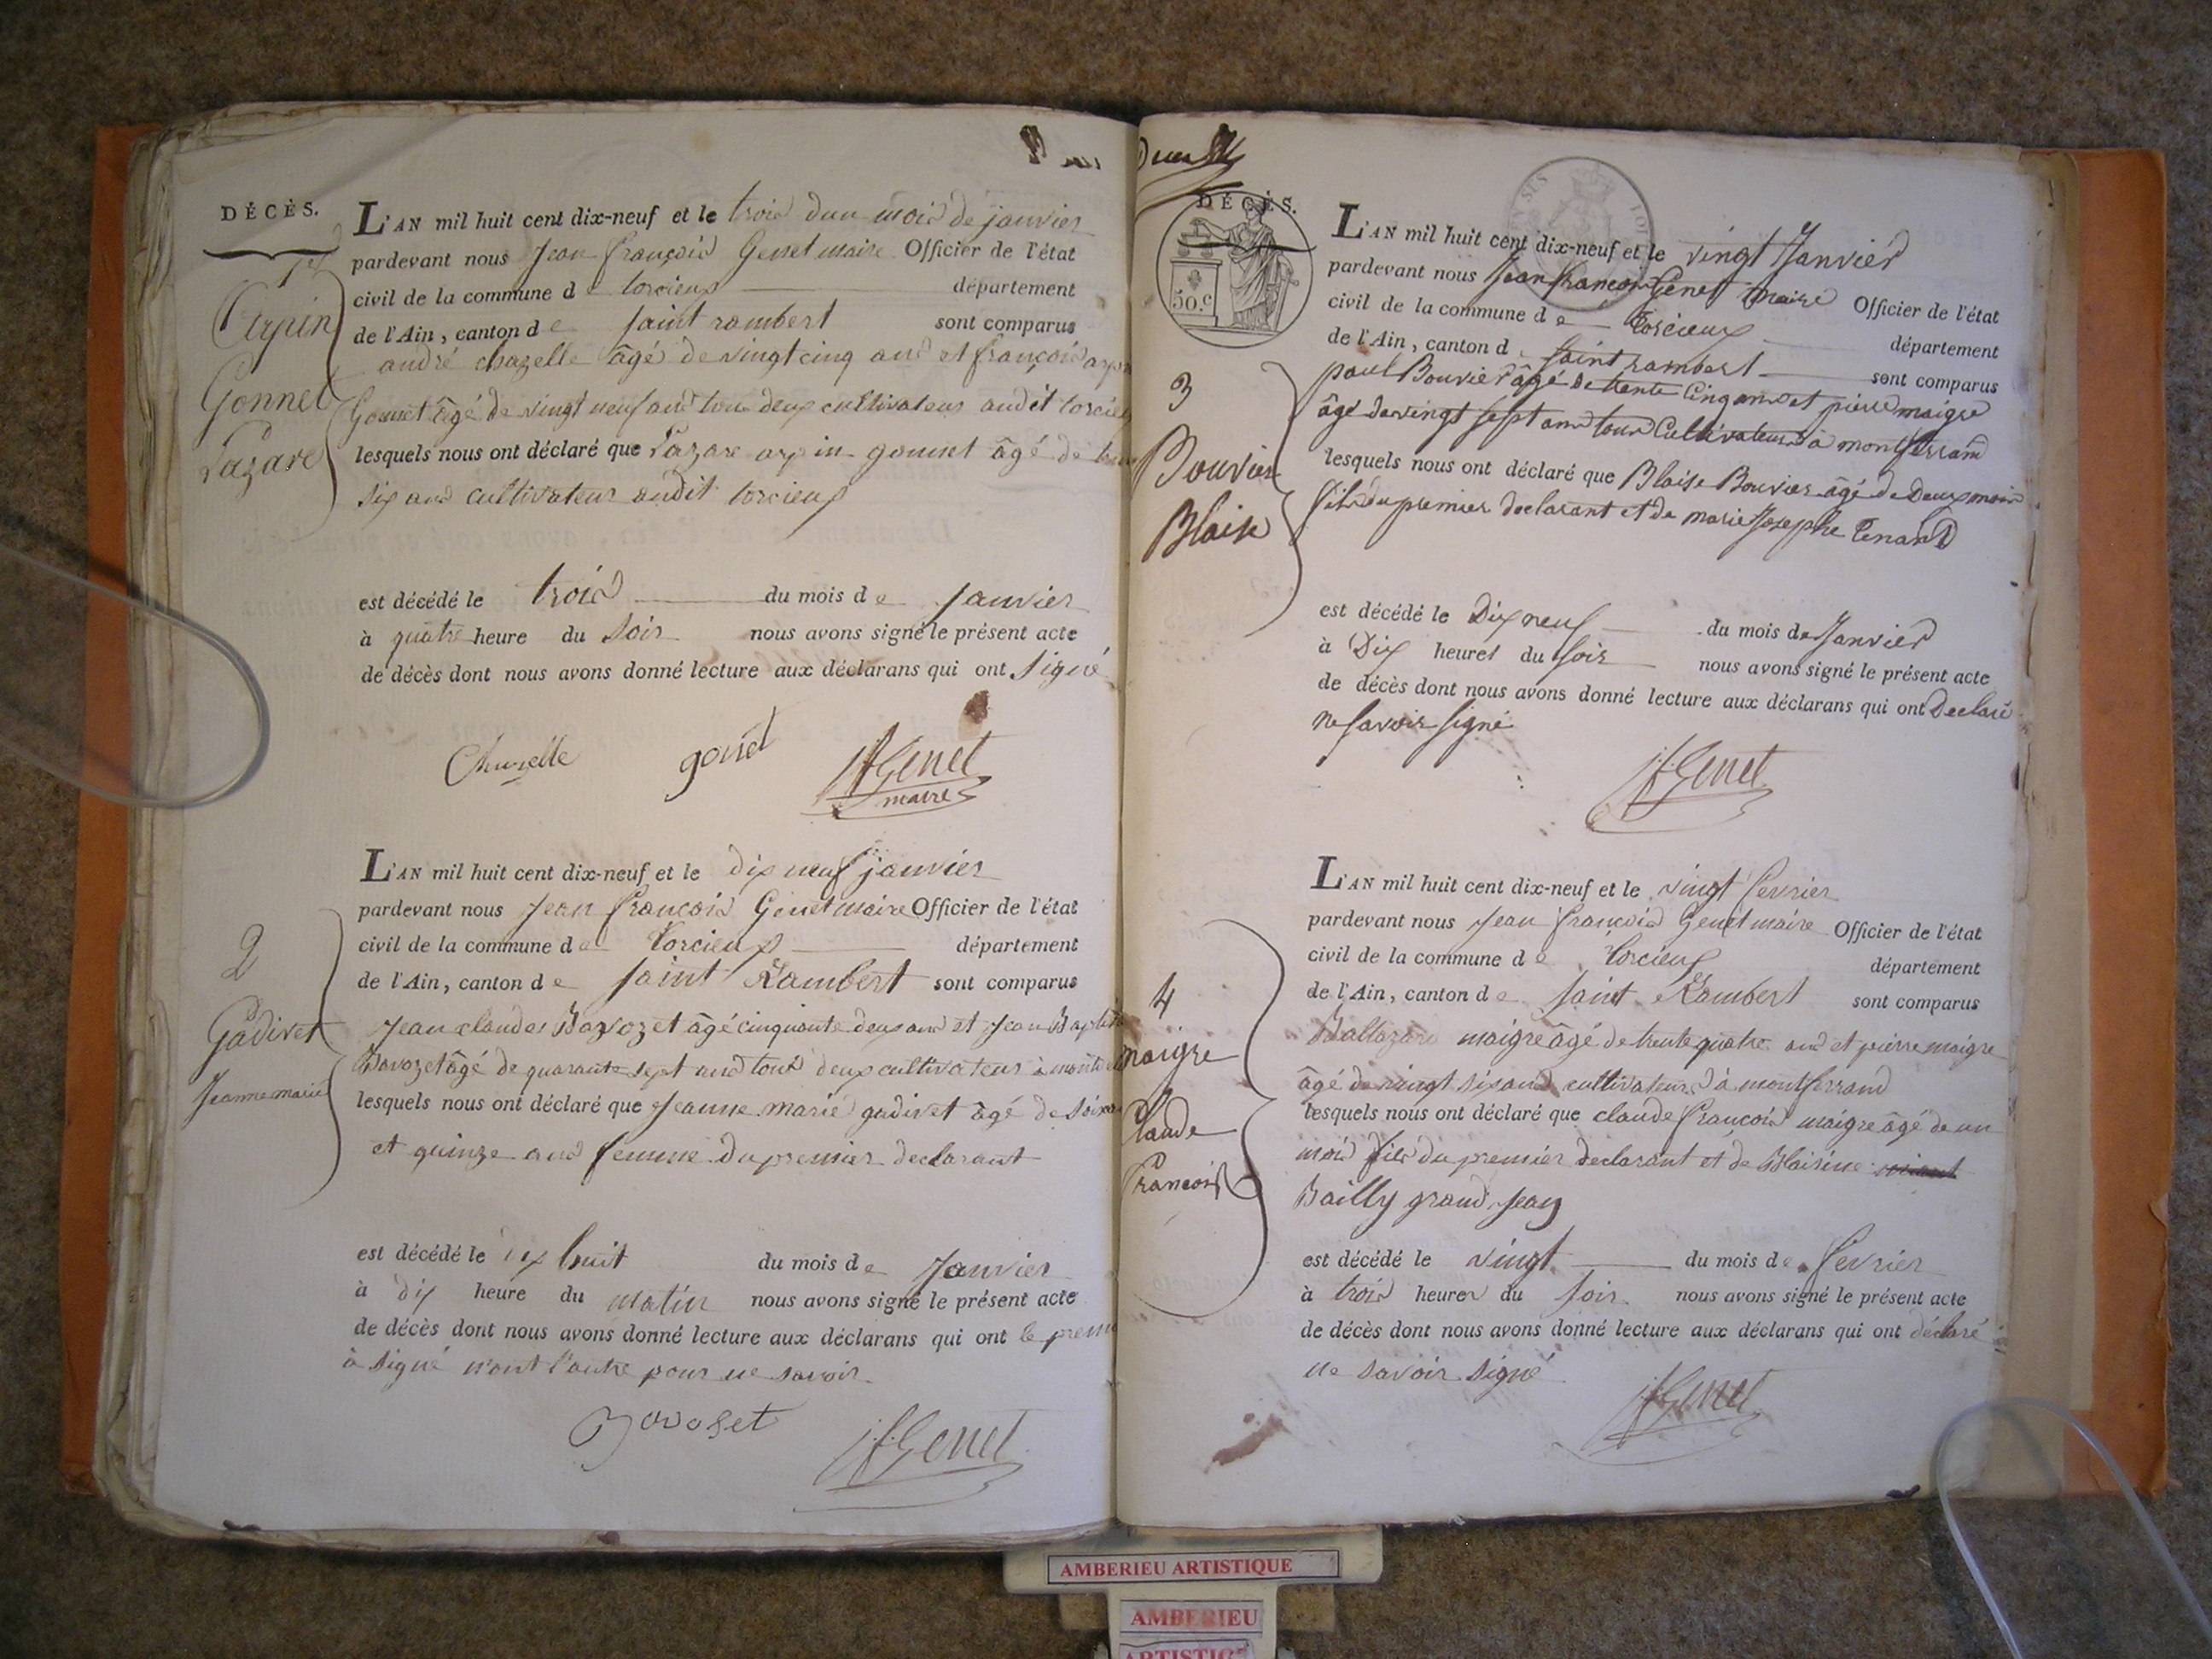 DÉCÈS.
1er
Arpin
Gonnet
Lazare
L'AN mil huit cent dix-neuf et le trois du mois de janvier
pardevant nous Jean françois Genet maire Officier de l'état
civil de la commune de torcieux département
de l'Ain, canton de saint rambert sont comparus
andré chazelle âgé de vingt cinq ans et françois
Gonnet âgé de vingt neuf ans tous deux cultivateurs audit
lesquels nous ont déclaré que Lazare arpin gonnet âgé de
six ans cultivateur audit torcieux
est décédé le trois du mois de janvier
à quatre heure du soir nous avons signé le présent acte
de décès dont nous avons donné lecture aux déclarans qui ont signé
Chazelle gonet JfGenet
maire
2
Gadivet
Jeanne marie
L'AN mil huit cent dix-neuf et le dix neuf janvier
pardevant nous Jean françois Genet maire Officier de l'état
civil de la commune de torcieux département
de l'Ain, canton de saint Rambert sont comparus
Jean claudes Bavozet âgé cinquante deux ans et Jean
Bavozet âgé de quarante sept ans tous deux cultivateurs à
lesquels nous ont déclaré que Jeanne marie gadivet âgé de
et quinze ans femme du premier declarant
est décédé le dix huit du mois de Janvier
à dix heure du matin nous avons signé le présent acte
de décès dont nous avons donné lecture aux déclarans qui ont le
à signé l'autre pour ne savoir
Bovoset JfGenet
DÉCÈS.
50.c
3
Bouvier
Blaise
L'AN mil huit cent dix-neuf et le vingt Janvier
pardevant nous Jean francois Genet maire Officier de l'état
civil de la commune de torcieux département
de l'Ain, canton de saint rambert sont comparus
paul Bouvier âgé de trente cinq ans et pierre maigre
âgé de vingt sept ans tous Cultivateurs à montferrand
lesquels nous ont déclaré que Blaise Bouvier âgé de Deux mois
fils du premier declarant et de marie Josephe Tenand
est décédé le Dix neuf du mois de Janvier
à Dix heures du soir nous avons signé le présent acte
de décès dont nous avons donné lecture aux déclarans qui ont Declaré
ne savoir signé
JfGenet
4
maigre
Claude
françois
L'AN mil huit cent dix-neuf et le vingt fevrier
pardevant nous Jean françois Genet maire Officier de l'état
civil de la commune de torcieux département
de l'Ain, canton de saint Rambert sont comparus
Baltazare maigre âgé de trente quatre ans et pierre maigre
âgé de vingt six ans cultivateurs à montferrand
lesquels nous ont déclaré que claude françois maigre âgé de un
mois fils du premier declarant et de Blaisine
Bailly grand Jean
est décédé le vingt du mois de fevrier
à trois heures du soir nous avons signé le présent acte
de décès dont nous avons donné lecture aux déclarans qui ont déclaré
ne savoir signé
JfGenet
AMBERIEU ARTISTIQUE
AMBERIEU
ARTISTIQUE